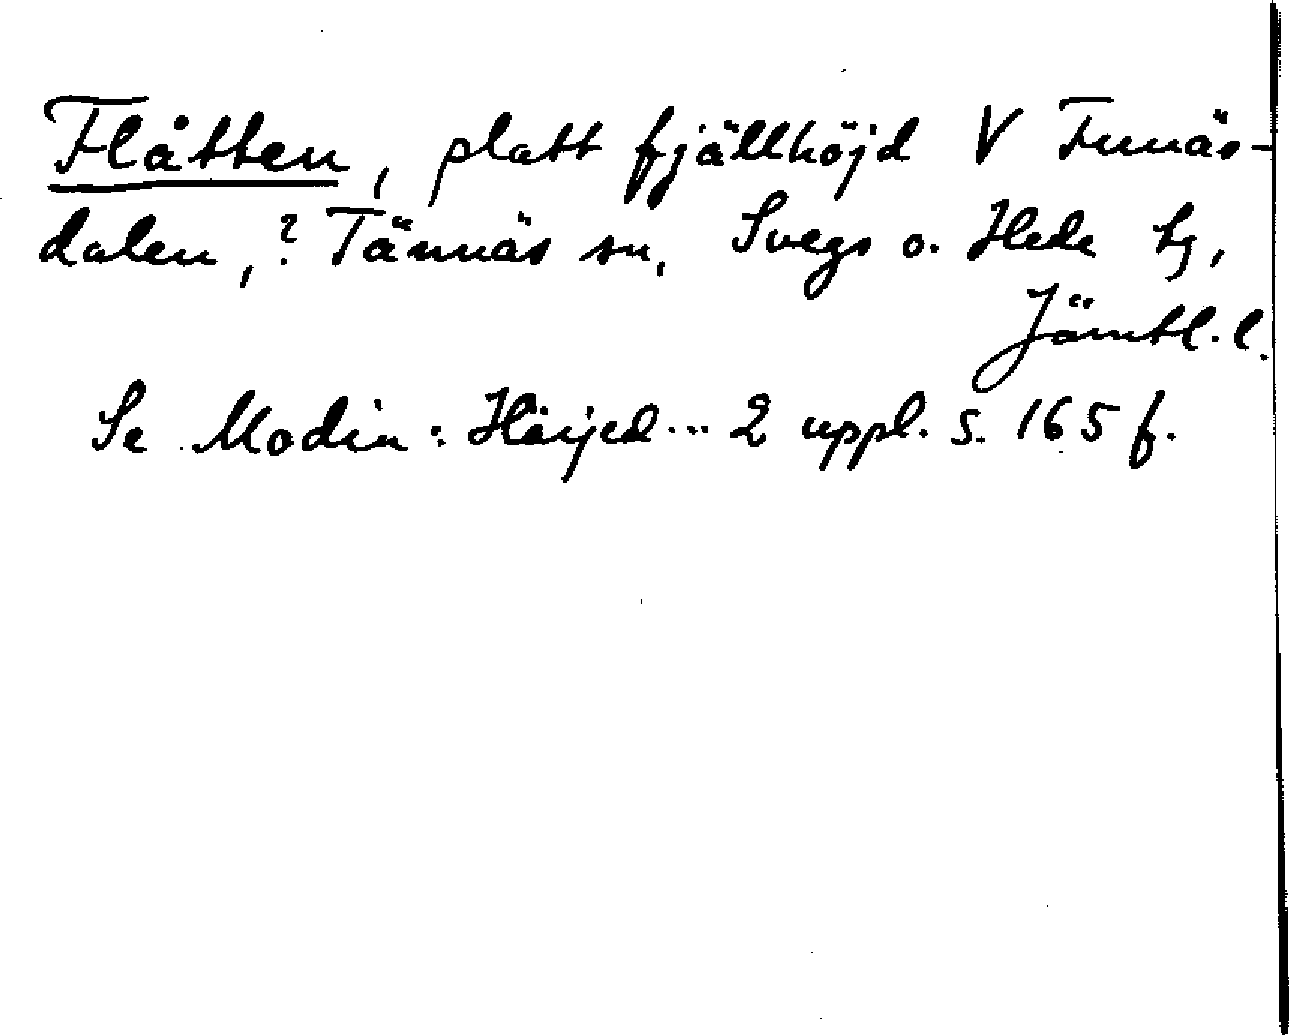 Flåtten, platt fjällhöjd V Funäs-
dalen, ? Tännäs sn, Svegs o. Hede tg,
Jämtl. l.
Se Modin: Härjed... 2 uppl. s. 165 f.